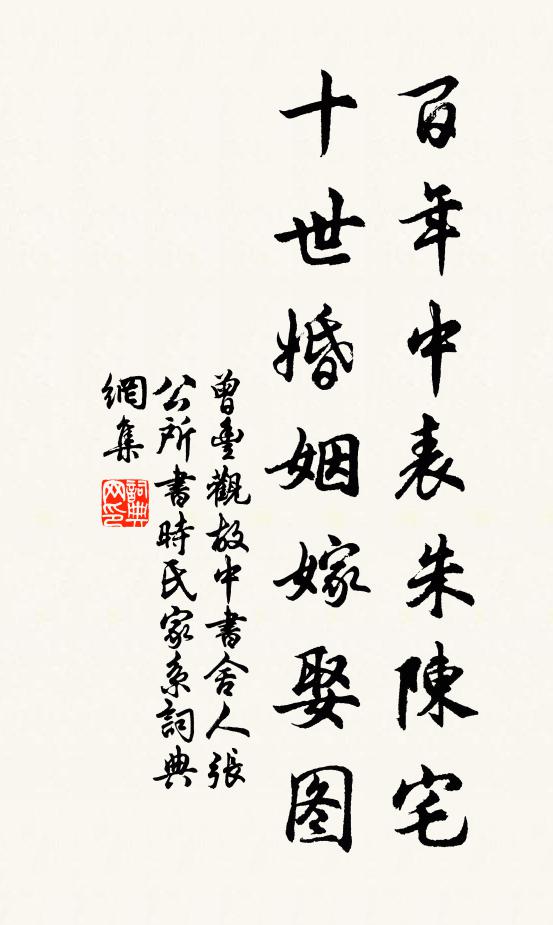 百年中表朱陳宅
十世婚姻嫁娶图
曾豊觀故中書舍人張
公所書時氏家系詞典
網集
詞典
网印